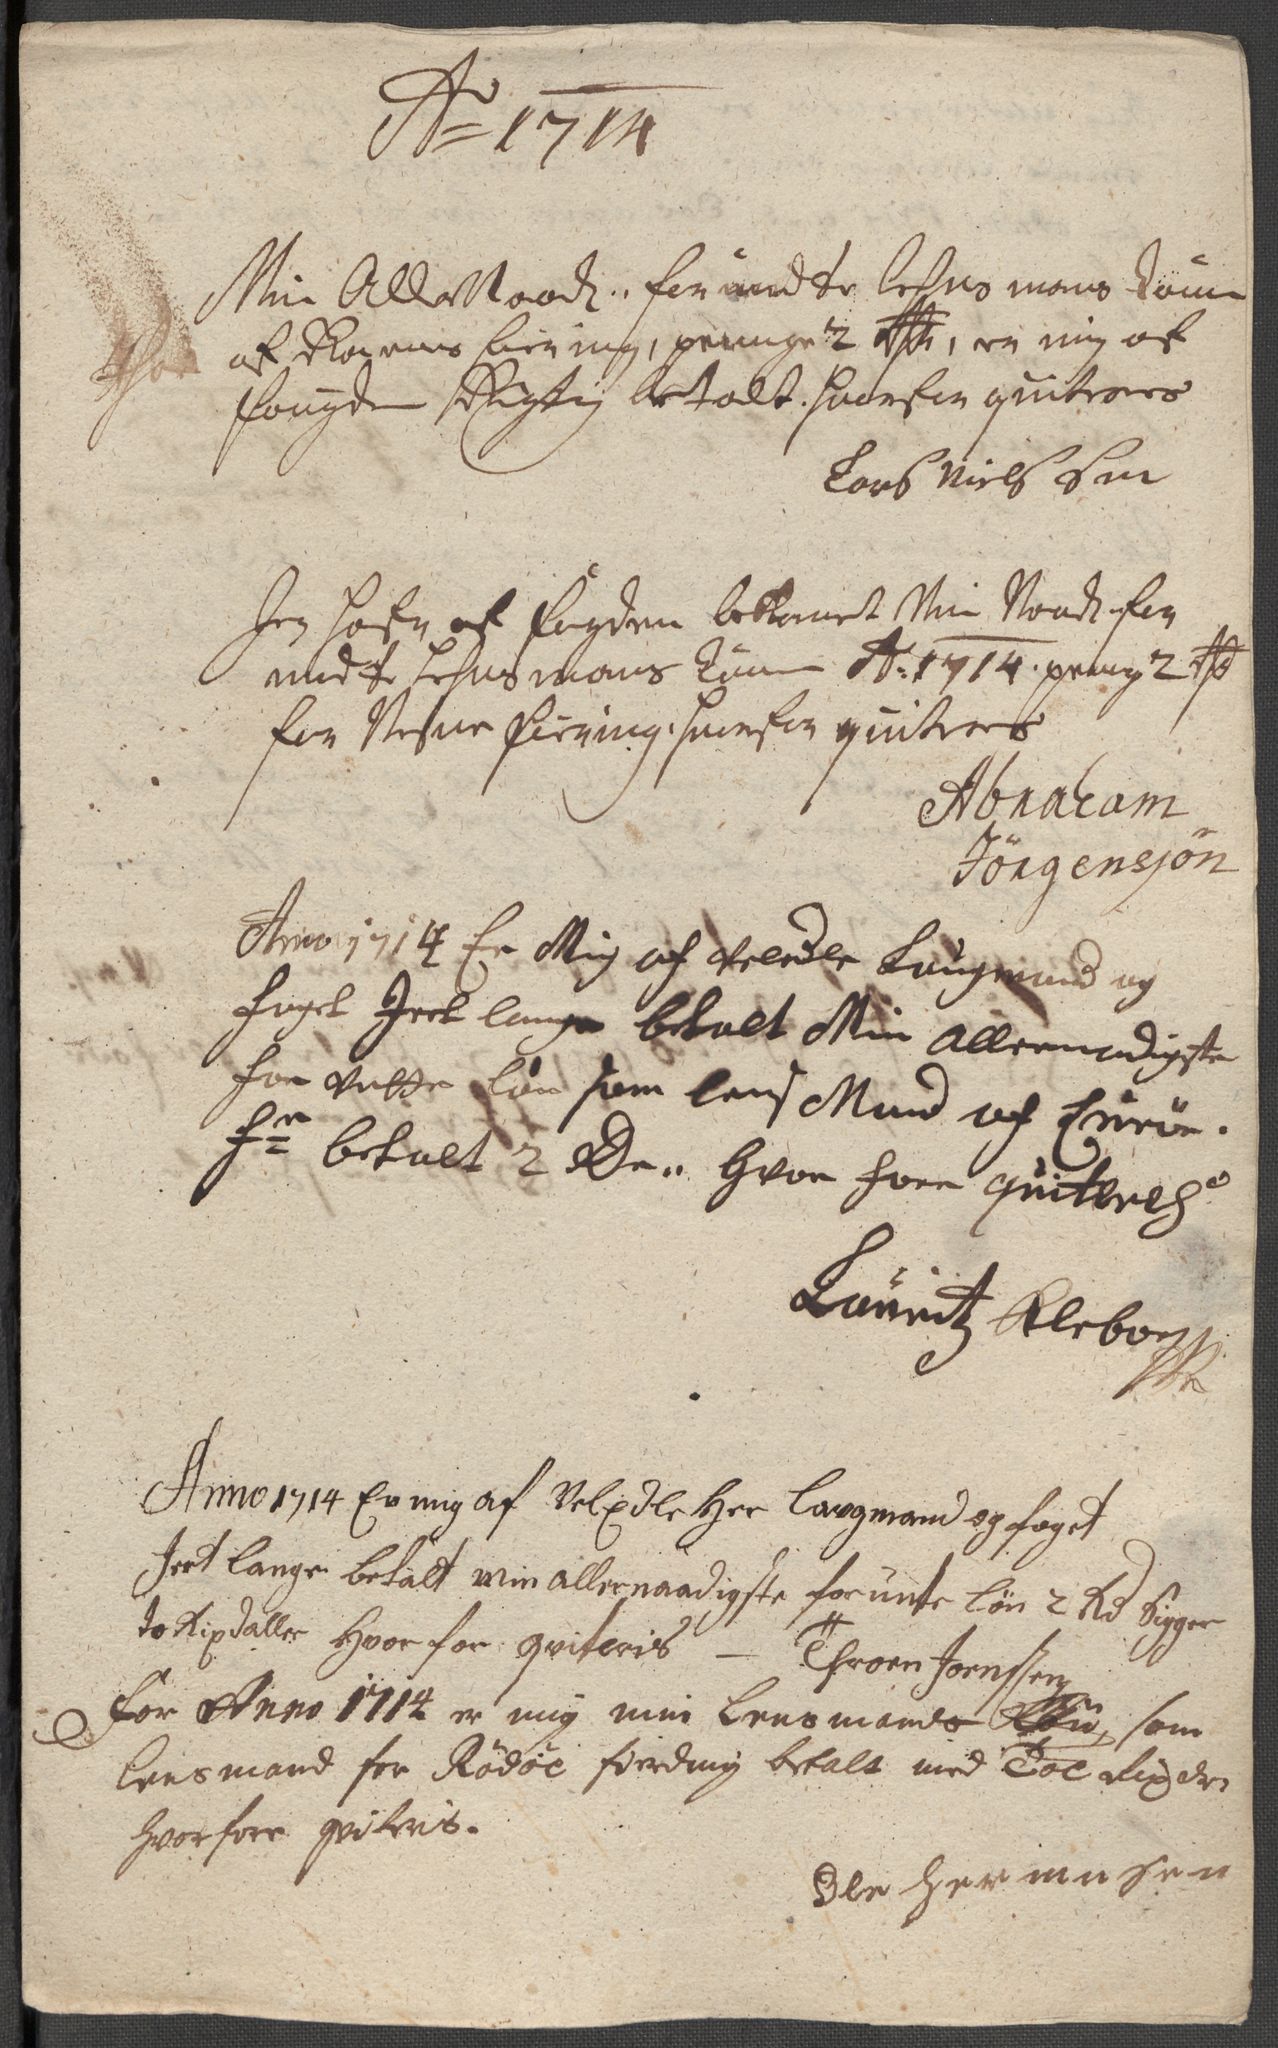 Ao 1714
Min Allernaad: for undte Lehns mans Lönn
af Ranens fierning, penge 2 Rdr, er mig af
fougden Rigtig betalt. hvorfor quiteres
Lars Niels Sen
Jeg hafr af fogden bekommet Min Naad: for
undte Lehnsmans Lönn Ao: 1714. penge 2 Rdr
for Nesne fierning. hvorfor quiteres
Abraham
Jörgensjön
Anno 1714 Er Mig af Veledle Laugmand og
foget Jert Lange betalt Min allernadigste
for untte Lön som lens Mand af
betalt 2 Dr. hvor fore quiterehs
Lauritz Kleboe
Anno 1714 Er mig af VelEdle Her Laugmand og foget
Jert Lange betalt min allernaadigste forunte Lön 2 Rd siger
to Rixdaller Hvor for qviteris — Throen Joenssen
For Anno 1714 er mig min Lensmands Lön, som
Lensmand for Rödöe fierding betalt med Toe Rixdr
hvorfore qviteris.
Ole Hermensen